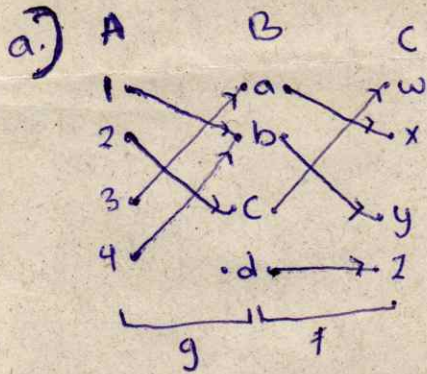 a.) A B C
1 a w
2 b x
3 c y
4 d z
g f